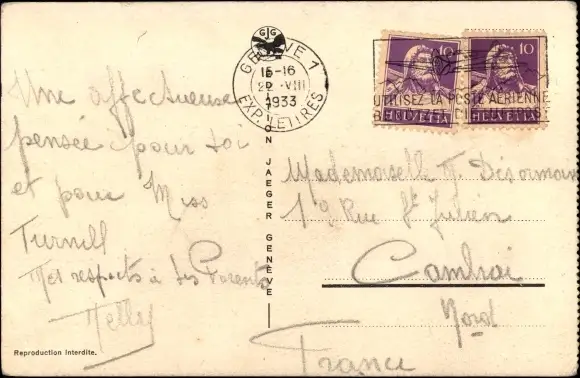 Une affectueuse
pensée pour toi
et pour Miss
Turnill
Mes respects à tes Parents
Nelly
Reproduction interdite.
GJG
GENÈVE 1
15-16
22.VIII
1933
EXP. LETTRES
N JAEGER GENÈVE
10 10
UTILISEZ LA POSTE AÉRIENNE
HELVETIA HELVETIA
Mademoiselle Désormais
19 Rue St Julien
Cambrai
Nord
France